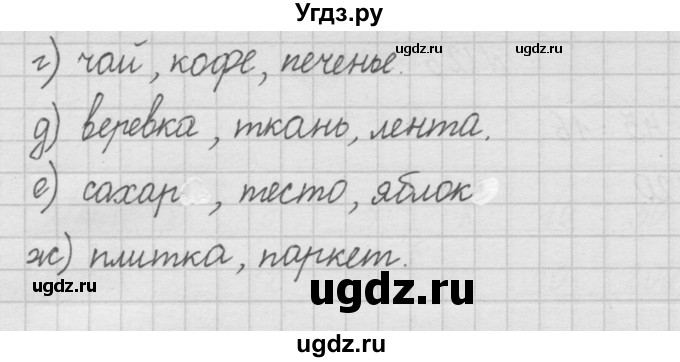 Угдз.ру
г) чай, кофе, печенье.
ugdz.ru
ugdz.ru
д) веревка, ткань, лента.
е) сахар, тесто, яблок
ж) плитка, паркет.
ugdz.ru
ugdz.ru
ugdz.ru